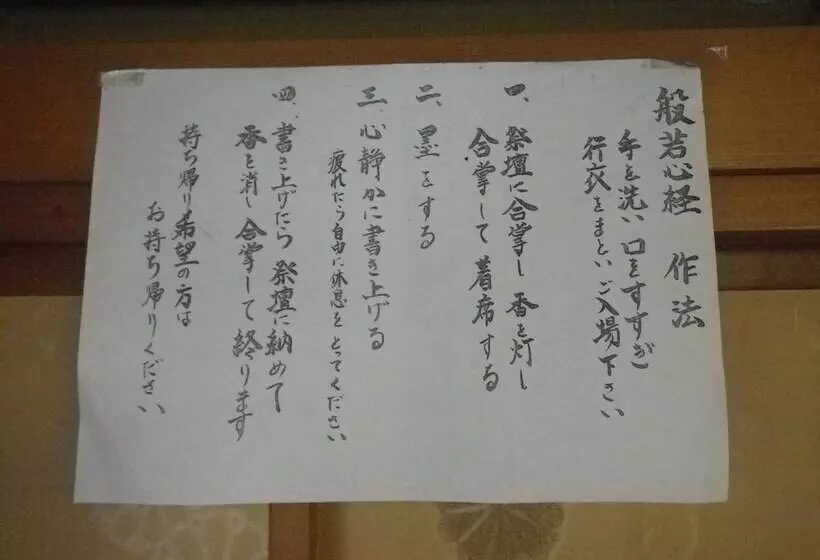 般若心経 作法
手を洗い 口をすすぎ
行衣をまといご入場下さい
一、祭壇に合掌し 香を灯し
合掌して 着席する
二、墨をする
三、心静かに書き上げる
疲れたら自由に休息をとってください
四、書き上げたら 祭壇に納めて
香を消し 合掌して 終ります
持ち帰り希望の方は
お持ち帰りください